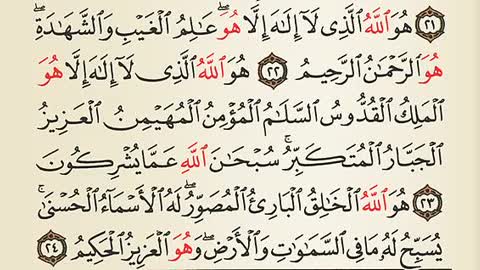 ﴿٢١﴾ هُوَ ٱللَّهُ ٱلَّذِى لَآ إِلَٰهَ إِلَّا هُوَۖ عَٰلِمُ ٱلْغَيْبِ وَٱلشَّهَٰدَةِۖ
هُوَ ٱلرَّحْمَٰنُ ٱلرَّحِيمُ ﴿٢٢﴾ هُوَ ٱللَّهُ ٱلَّذِى لَآ إِلَٰهَ إِلَّا هُوَ
ٱلْمَلِكُ ٱلْقُدُّوسُ ٱلسَّلَٰمُ ٱلْمُؤْمِنُ ٱلْمُهَيْمِنُ ٱلْعَزِيزُ
ٱلْجَبَّارُ ٱلْمُتَكَبِّرُۚ سُبْحَٰنَ ٱللَّهِ عَمَّا يُشْرِكُونَ
﴿٢٣﴾ هُوَ ٱللَّهُ ٱلْخَٰلِقُ ٱلْبَارِئُ ٱلْمُصَوِّرُۖ لَهُ ٱلْأَسْمَآءُ ٱلْحُسْنَىٰۚ
يُسَبِّحُ لَهُۥ مَا فِى ٱلسَّمَٰوَٰتِ وَٱلْأَرْضِۖ وَهُوَ ٱلْعَزِيزُ ٱلْحَكِيمُ ﴿٢٤﴾